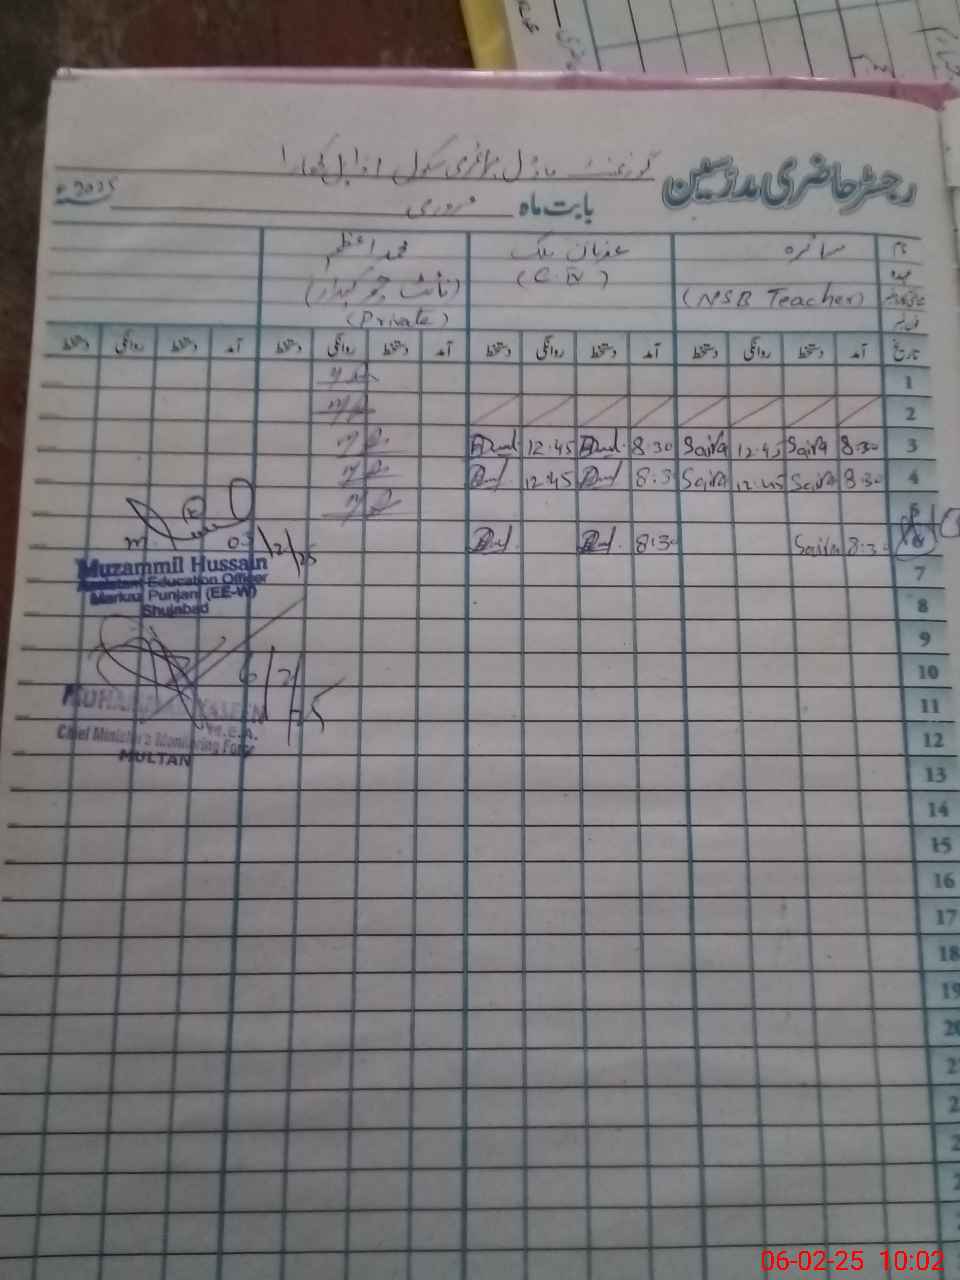 رجسٹر حاضری مدرسین گورنمنٹ ماڈل پرائمری سکول
بابت ماہ فروری 2025ء
نام سائرہ عرفان ملک محمد اعظم
عہدہ (C.IV) (نائٹ چوکیدار)
(NSB Teacher) (Private)
تاریخ آمد دستخط روانگی دستخط آمد دستخط روانگی دستخط آمد دستخط روانگی دستخط آمد دستخط روانگی دستخط
1
2
3 8:30 Saira 12:45 Saira 8:30 12:45
4 8:30 Saira 12:45 Saira 8:30 12:45
5
6 8:30 Saira 8:30
7
8
9
10
11
12
13
14
15
16
17
18
19
20
/2/25
Muzammil Hussain
Assistant Education Officer
Markaz Punjani (EE-W)
Shujabad
6/2/25
MUHAMMAD YASEEN
M.E.A.
Chief Minister's Monitoring Force
MULTAN
06-02-25 10:02